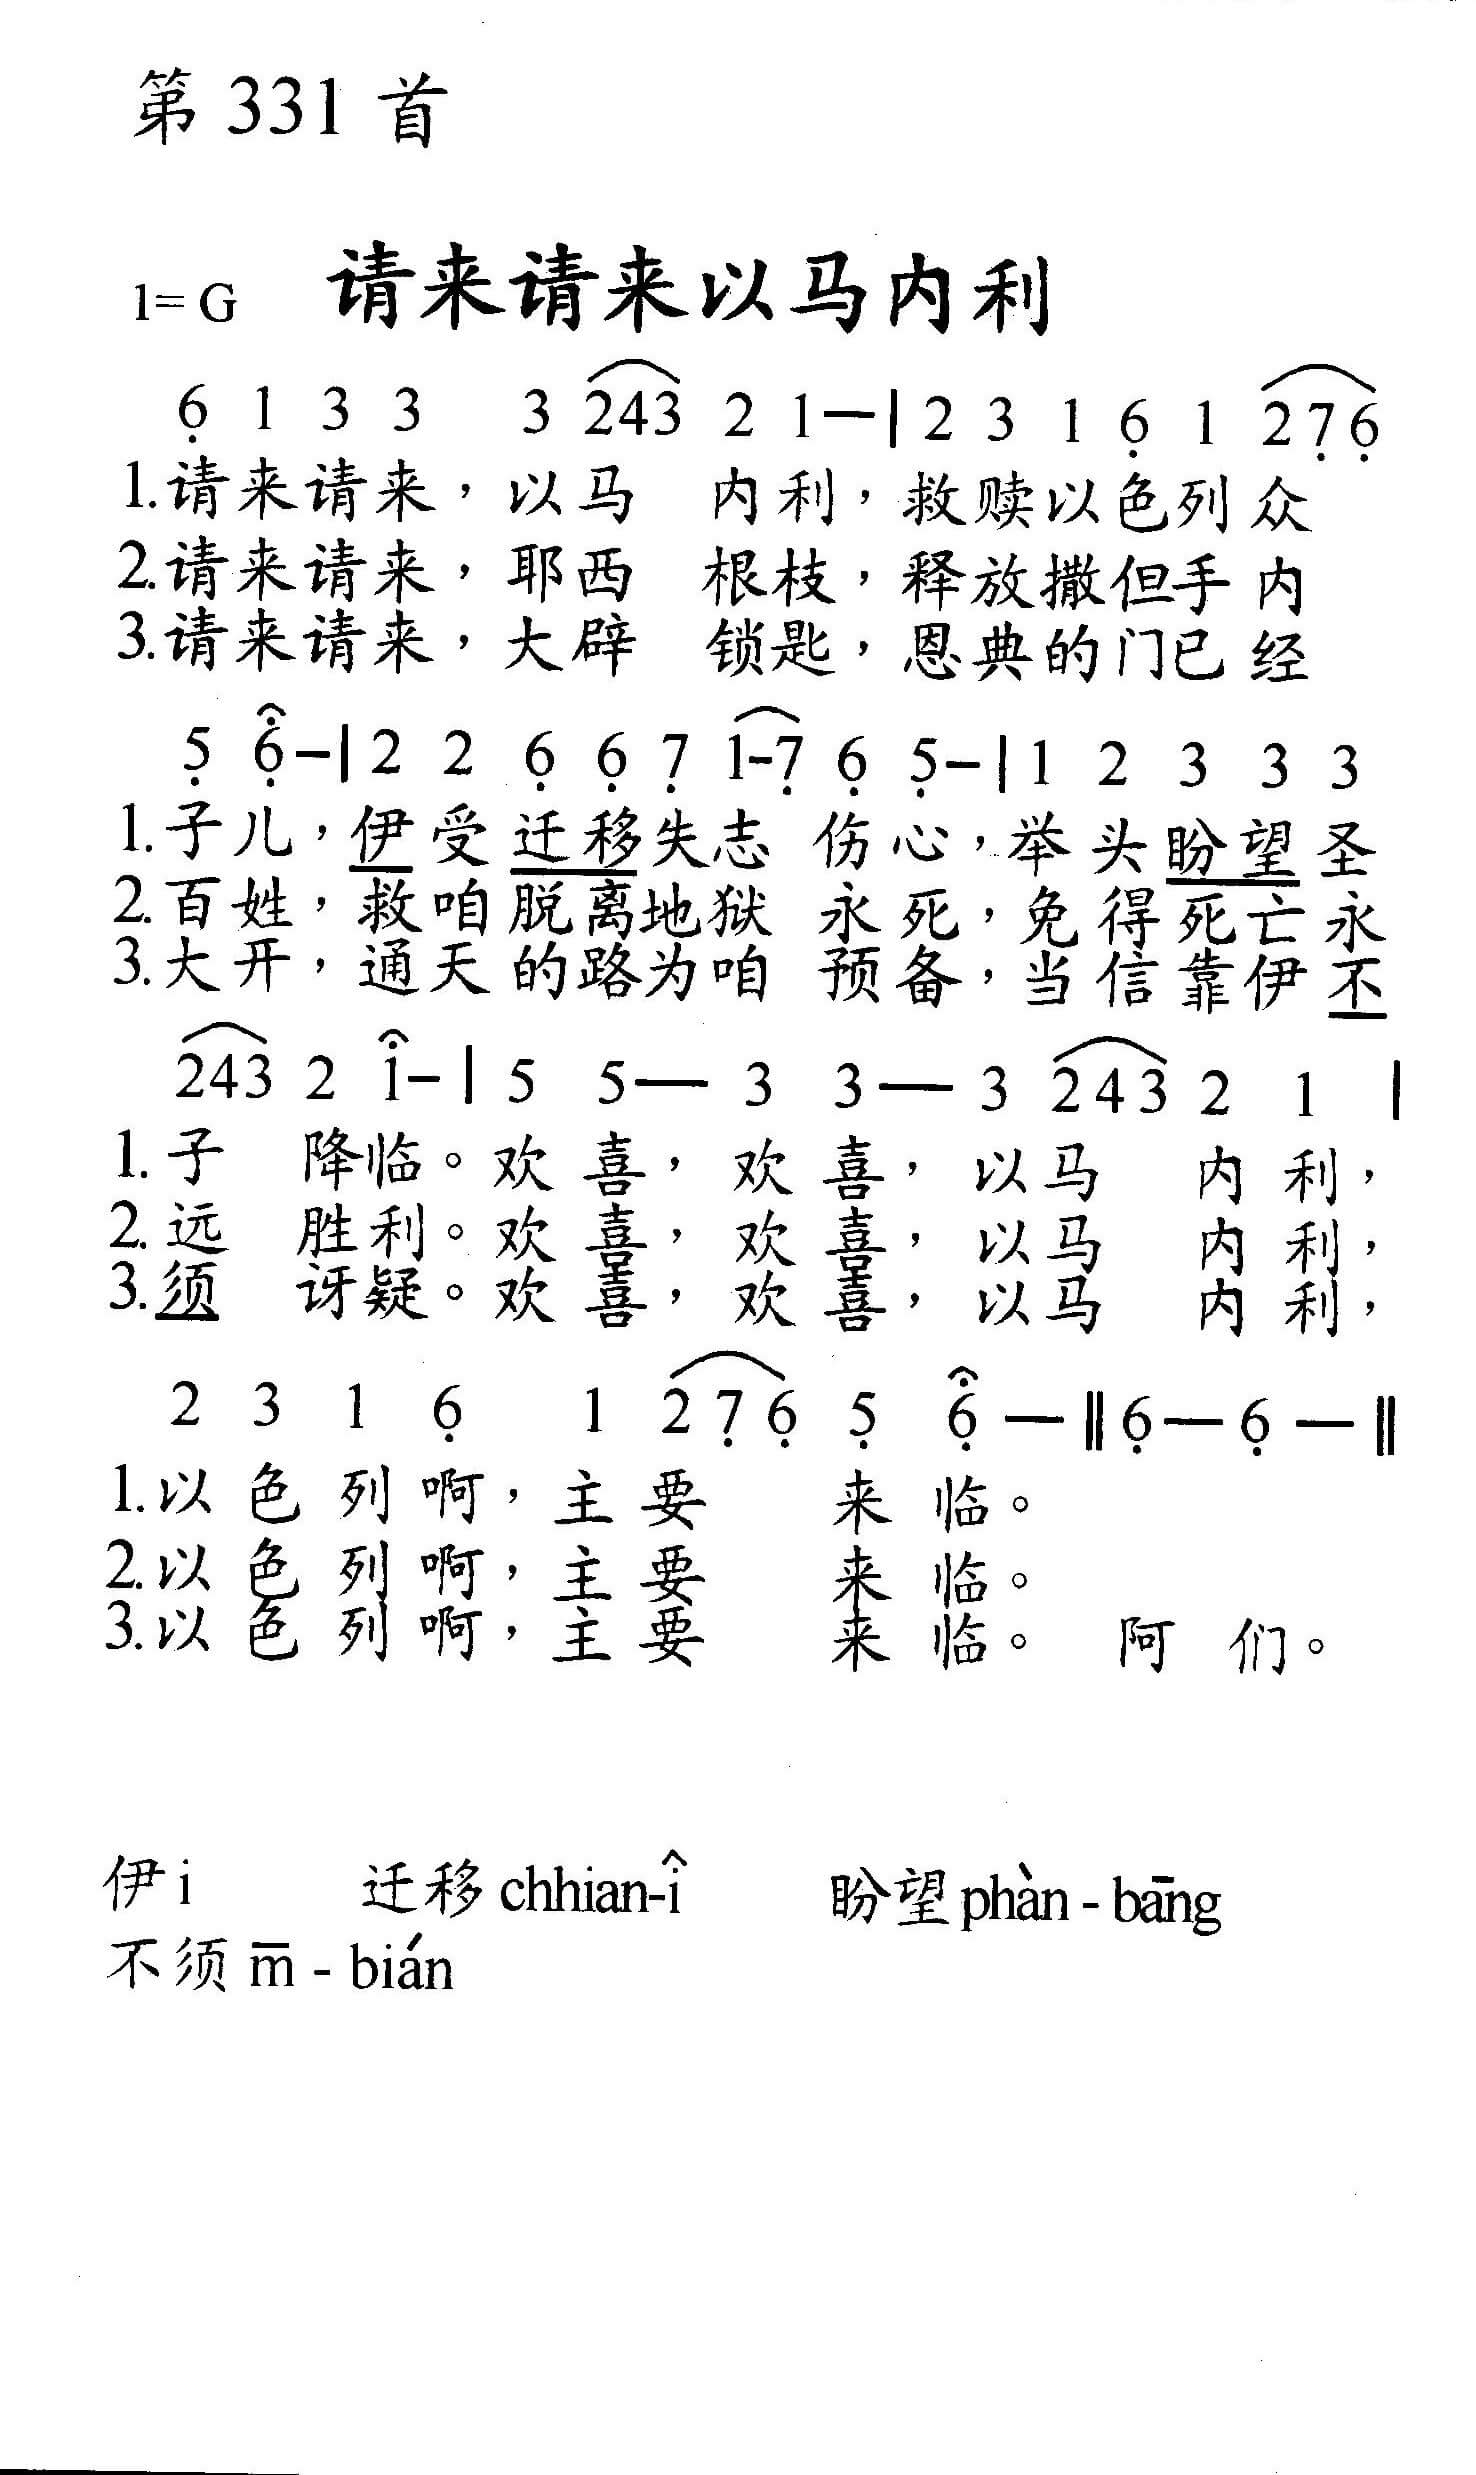 第 331 首
1=G 请来请来以马内利
6̣ 1 3 3 3 243 2 1—| 2 3 1 6̣ 1 27̣6̣
1.请来请来，以马 内利，救赎以色列众
2.请来请来，耶西 根枝，释放撒但手内
3.请来请来，大辟 锁匙，恩典的门已经
5̣ 6̣-| 2 2 6̣ 6̣ 7̣ 1-7̣ 6̣ 5̣-| 1 2 3 3 3
1.子儿，伊受迁移失志 伤心，举头盼望圣
2.百姓，救咱脱离地狱 永死，免得死亡永
3.大开，通天的路为咱 预备，当信靠伊不
243 2 1-| 5 5— 3 3— 3 243 2 1 |
1.子 降临。欢喜，欢喜，以马 内利，
2.远 胜利。欢喜，欢喜，以马 内利，
3.须 讶疑。欢喜，欢喜，以马 内利，
2 3 1 6̣ 1 27̣6̣ 5̣ 6̣—‖6̣—6̣—‖
1.以色列啊，主要 来临。
2.以色列啊，主要 来临。
3.以色列啊，主要 来临。阿们。
伊 i 迁移 chhian-î 盼望 phàn-bāng
不须 m̄-bián